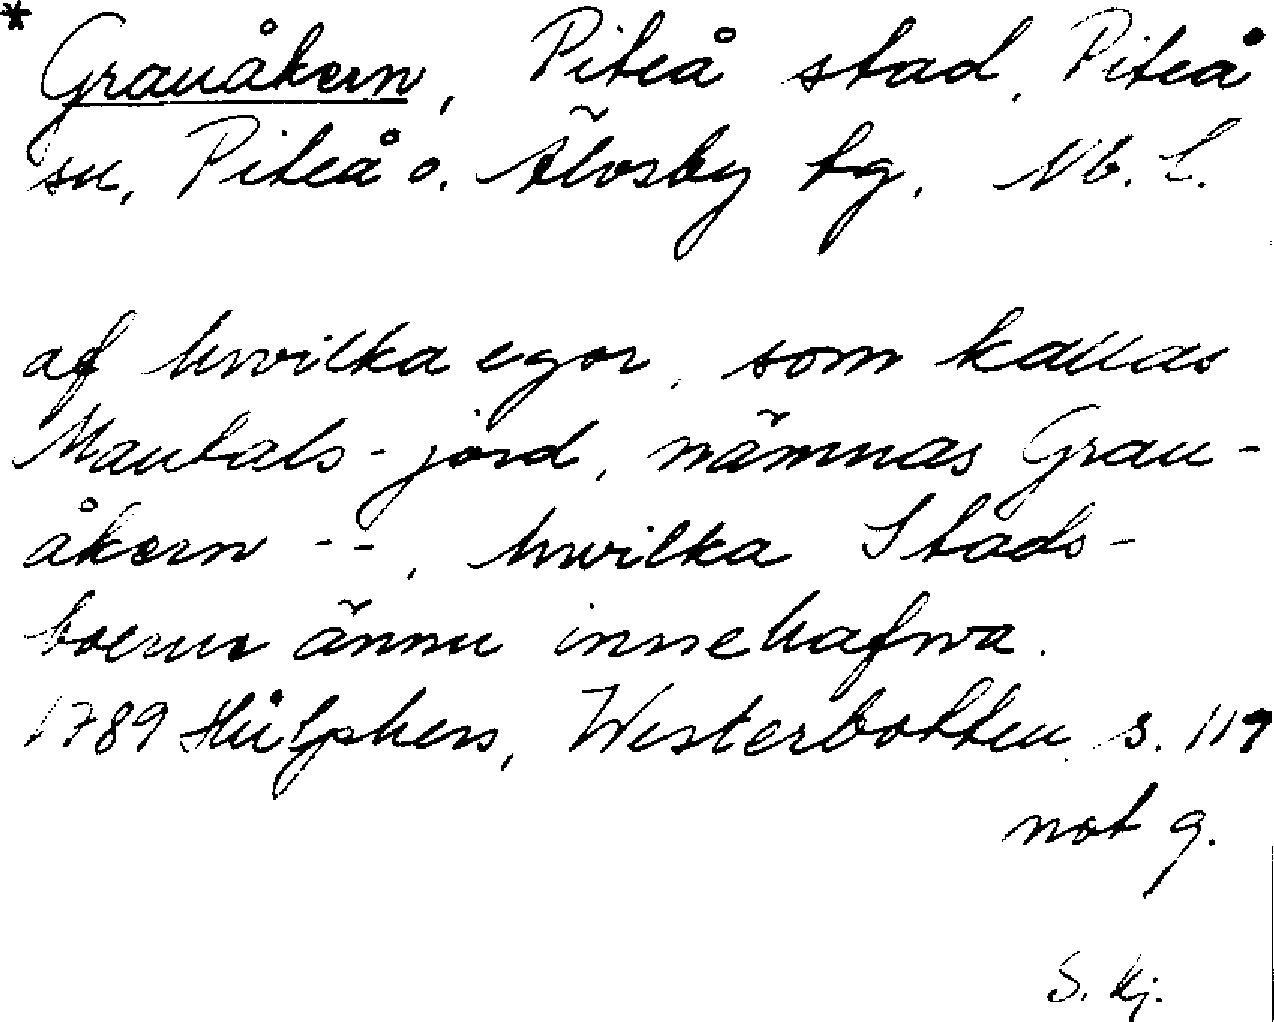 * Granåkern, Piteå stad, Piteå
sn, Piteå o. Älvsby tg. Nb. L.
af hwilka egor, som kallas
Mantals-jord, nämnas Gran-
åkern --, hwilka Stads-
boerne ännu innehafwa.
1789 Hülphers, Westerbotten s. 119
not g.
S. Kj.